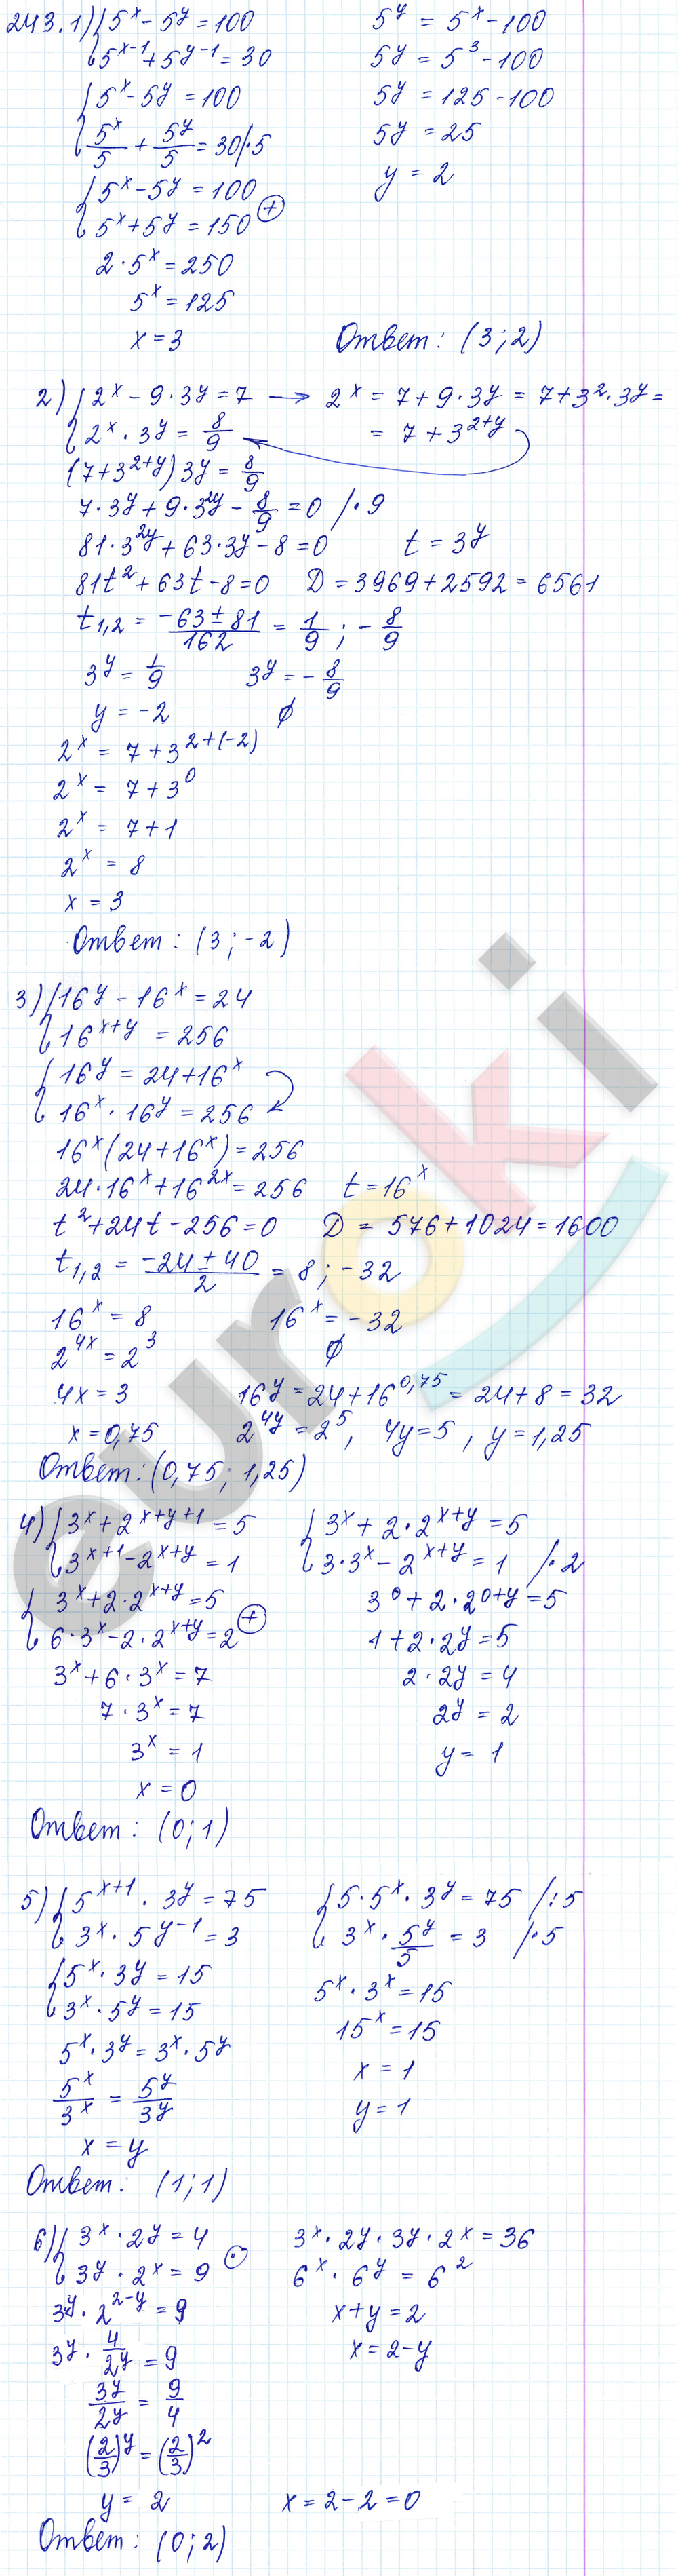 243. 1) { 5^x - 5^y = 100
5^(x-1) + 5^(y-1) = 30
{ 5^x - 5^y = 100
5^x/5 + 5^y/5 = 30 /·5
{ 5^x - 5^y = 100
5^x + 5^y = 150 (+)
2·5^x = 250
5^x = 125
x = 3
5^y = 5^x - 100
5^y = 5^3 - 100
5^y = 125 - 100
5^y = 25
y = 2
Ответ: (3; 2)
2) { 2^x - 9·3^y = 7 → 2^x = 7 + 9·3^y = 7 + 3^2·3^y =
2^x · 3^y = 8/9
= 7 + 3^(2+y)
(7 + 3^(2+y)) 3^y = 8/9
7·3^y + 9·3^(2y) - 8/9 = 0 /·9
81·3^(2y) + 63·3^y - 8 = 0 t = 3^y
81t^2 + 63t - 8 = 0 D = 3969 + 2592 = 6561
t1,2 = (-63 ± 81)/162 = 1/9; -8/9
3^y = 1/9 3^y = -8/9
y = -2 ∅
2^x = 7 + 3^(2+(-2))
2^x = 7 + 3^0
2^x = 7 + 1
2^x = 8
x = 3
Ответ: (3; -2)
3) { 16^y - 16^x = 24
16^(x+y) = 256
{ 16^y = 24 + 16^x
16^x · 16^y = 256
16^x (24 + 16^x) = 256
24·16^x + 16^(2x) = 256 t = 16^x
t^2 + 24t - 256 = 0 D = 576 + 1024 = 1600
t1,2 = (-24 ± 40)/2 = 8; -32
16^x = 8 16^x = -32
2^(4x) = 2^3 ∅
4x = 3 16^y = 24 + 16^0,75 = 24 + 8 = 32
x = 0,75 2^(4y) = 2^5, 4y = 5, y = 1,25
Ответ: (0,75; 1,25)
4) { 3^x + 2^(x+y+1) = 5
3^(x+1) - 2^(x+y) = 1
{ 3^x + 2·2^(x+y) = 5
3·3^x - 2^(x+y) = 1 /·2
{ 3^x + 2·2^(x+y) = 5
6·3^x - 2·2^(x+y) = 2 (+)
3^x + 6·3^x = 7
7·3^x = 7
3^x = 1
x = 0
3^0 + 2·2^(0+y) = 5
1 + 2·2^y = 5
2·2^y = 4
2^y = 2
y = 1
Ответ: (0; 1)
5) { 5^(x+1) · 3^y = 75
3^x · 5^(y-1) = 3
{ 5·5^x · 3^y = 75 /:5
3^x · 5^y/5 = 3 /·5
{ 5^x · 3^y = 15
3^x · 5^y = 15
5^x · 3^y = 3^x · 5^y
5^x/3^x = 5^y/3^y
x = y
5^x · 3^x = 15
15^x = 15
x = 1
y = 1
Ответ: (1; 1)
6) { 3^x · 2^y = 4
3^y · 2^x = 9 (·)
3^x · 2^y · 3^y · 2^x = 36
6^x · 6^y = 6^2
x + y = 2
x = 2 - y
3^y · 2^(2-y) = 9
3^y · 4/2^y = 9
3^y/2^y = 9/4
(2/3)^y = (2/3)^2
y = 2 x = 2 - 2 = 0
Ответ: (0; 2)
euroki